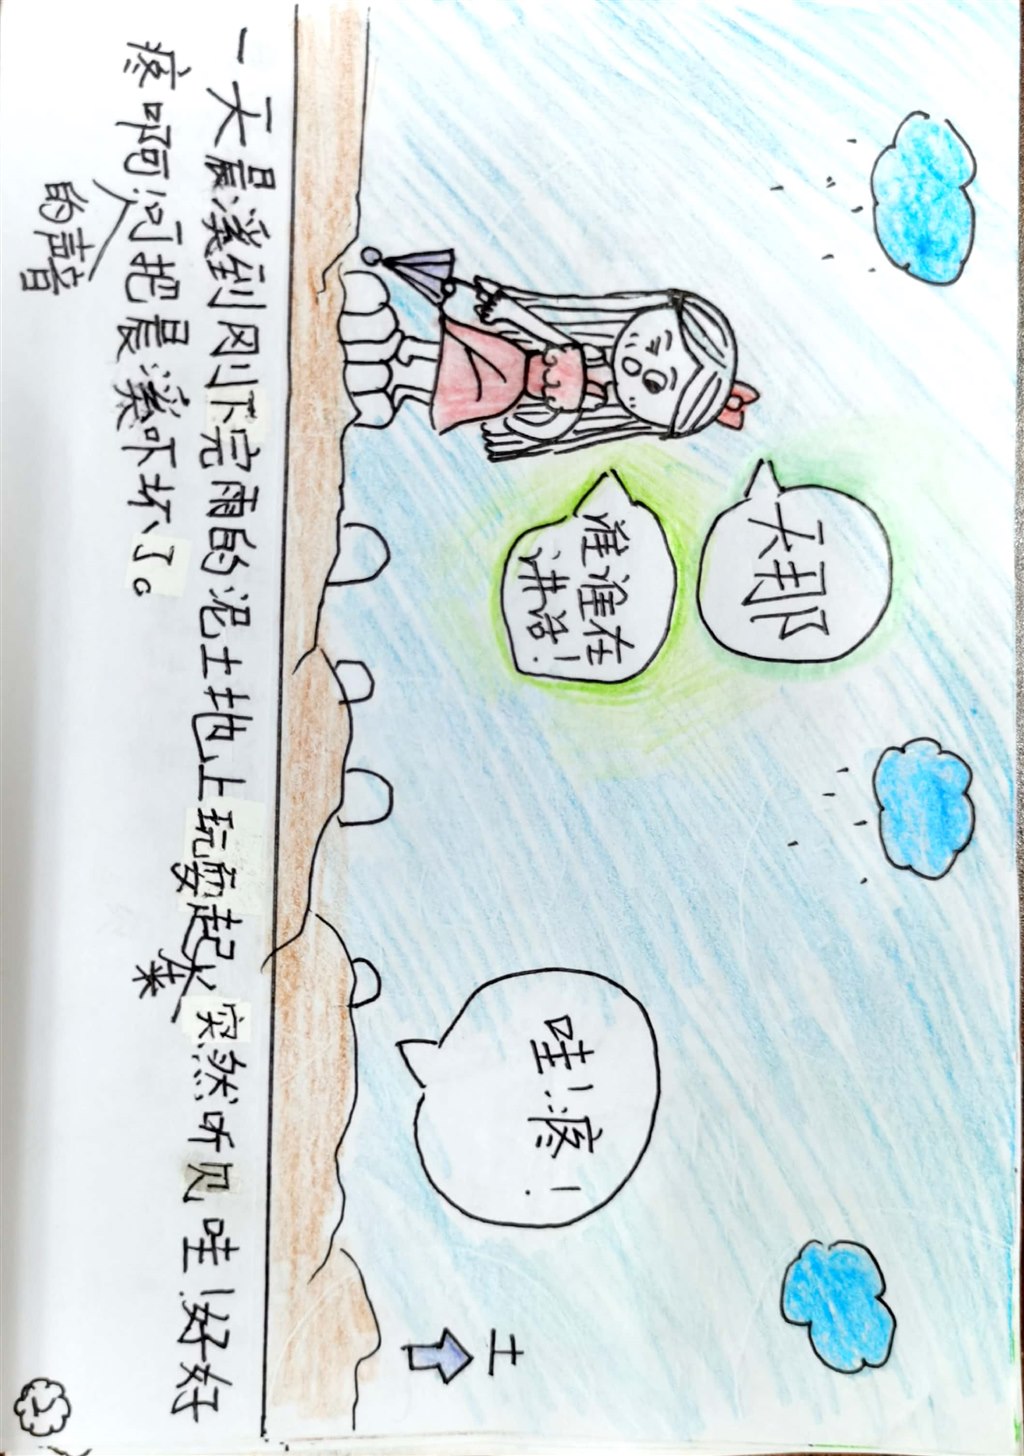 天那
谁谁在
讲话！
哇！疼！
土
一天晨溪到刚下完雨的泥土地上玩耍起来，突然听见哇！好好
疼啊的声音把晨溪吓坏了。
2